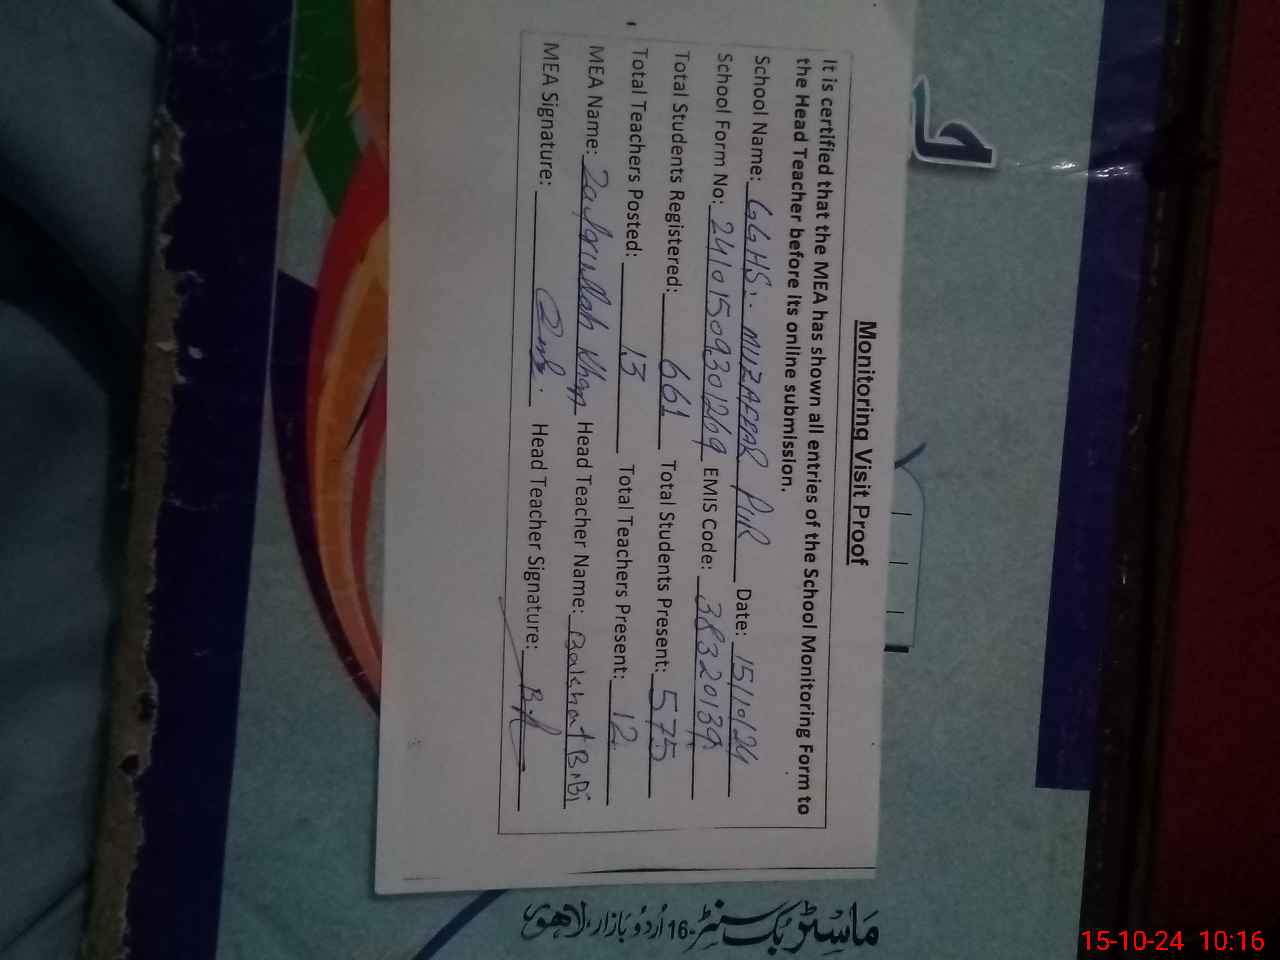 Monitoring Visit Proof
It is certified that the MEA has shown all entries of the School Monitoring Form to
the Head Teacher before its online submission.
School Name: GGHS:- MUZAFFAR PUR Date: 15/10/24
School Form No: 241015093012169 EMIS Code: 38320139
Total Students Registered: 661 Total Students Present: 575
Total Teachers Posted: 13 Total Teachers Present: 12
MEA Name: Zafrullah Khan Head Teacher Name: Bakhat BiBi
MEA Signature: Head Teacher Signature:
ماسٹر بک سنٹر -16 اُردو بازار، لاہور
15-10-24 10:16